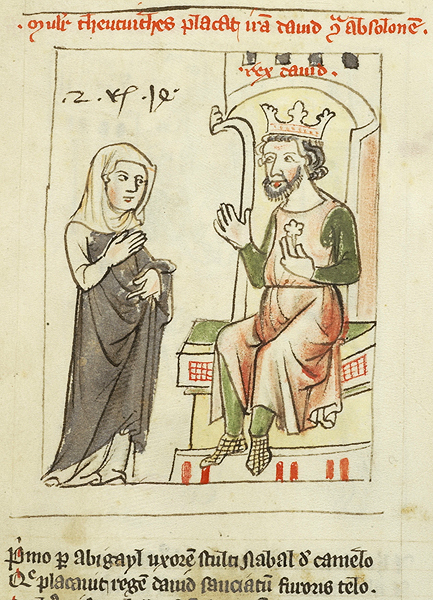 Mulr̄ theucuithes placat irā david ꝯ absolonē.
.rex david.
.2. Rꝭ. 14.
Pͥmo p abigayl uxorē stulti Nabal d̄ camelo
Qͤ placauit regē david sauciatū furoris telo.